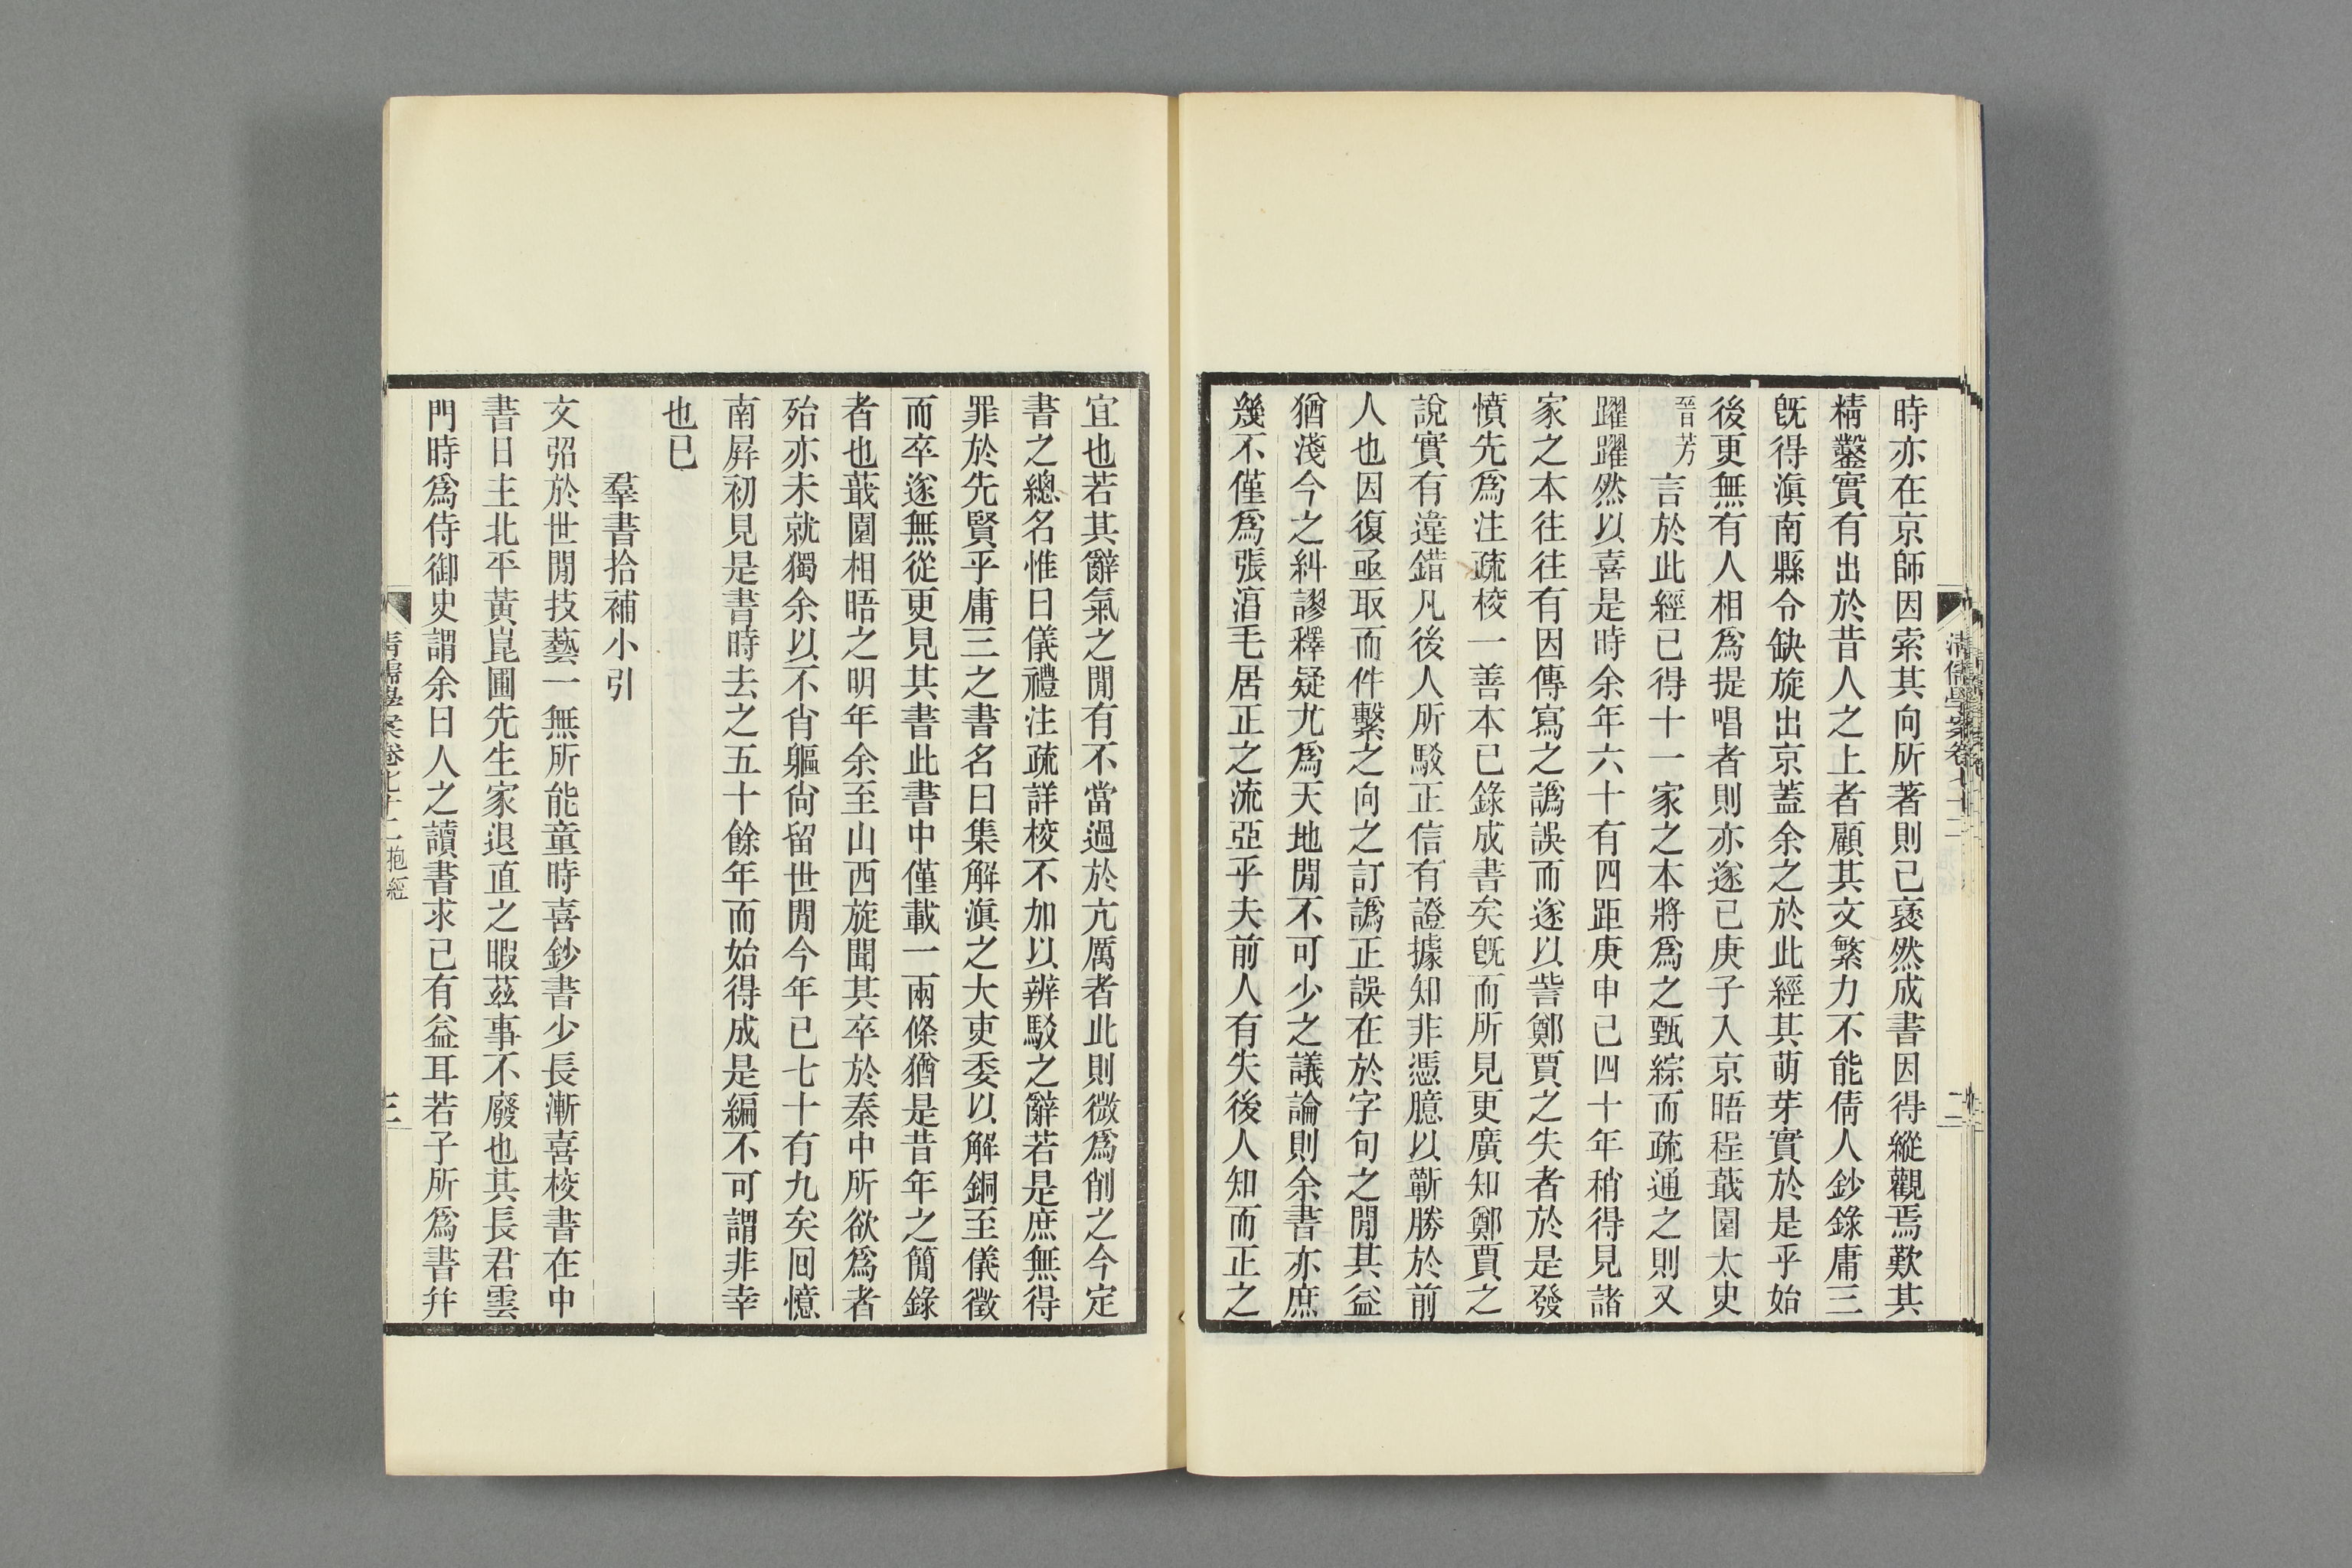 時亦在京師因索其向所著則已裦然成書因得縱觀焉歎其
精鑿實有出於昔人之上者顧其文繁力不能倩人鈔錄庸三
旣得滇南縣令缺旋出京蓋余之於此經其萌芽實於是乎始
後更無有人相爲提唱者則亦遂已庚子入京晤程蕺園太史
晉芳言於此經已得十一家之本將爲之甄綜而疏通之則又
躍躍然以喜是時余年六十有四距庚申己四十年稍得見諸
家之本往往有因傳寫之譌誤而遂以訾鄭賈之失者於是發
憤先爲注疏校一善本已錄成書矣旣而所見更廣知鄭賈之
說實有違錯凡後人所駁正信有證據知非憑臆以蘄勝於前
人也因復亟取而件繫之向之訂譌正誤在於字句之閒其益
猶淺今之糾謬釋疑尤爲天地閒不可少之議論則余書亦庶
幾不僅爲張淳毛居正之流亞乎夫前人有失後人知而正之
清儒學案卷七十二
二
宜也若其辭氣之閒有不當過於亢厲者此則微爲削之今定
書之總名惟曰儀禮注疏詳校不加以辨駁之辭若是庶無得
罪於先賢乎庸三之書名曰集解滇之大吏委以解銅至儀徵
而卒遂無從更見其書此書中僅載一兩條猶是昔年之簡錄
者也蕺園相晤之明年余至山西旋聞其卒於秦中所欲爲者
殆亦未就獨余以不肖軀尙留世閒今年已七十有九矣回憶
南屛初見是書時去之五十餘年而始得成是編不可謂非幸
也已
羣書拾補小引
文弨於世閒技藝一無所能童時喜鈔書少長漸喜校書在中
書日主北平黃崑圃先生家退直之暇茲事不廢也其長君雲
門時爲侍御史謂余曰人之讀書求己有益耳若子所爲書幷
清儒學案卷七十二 抱經
三